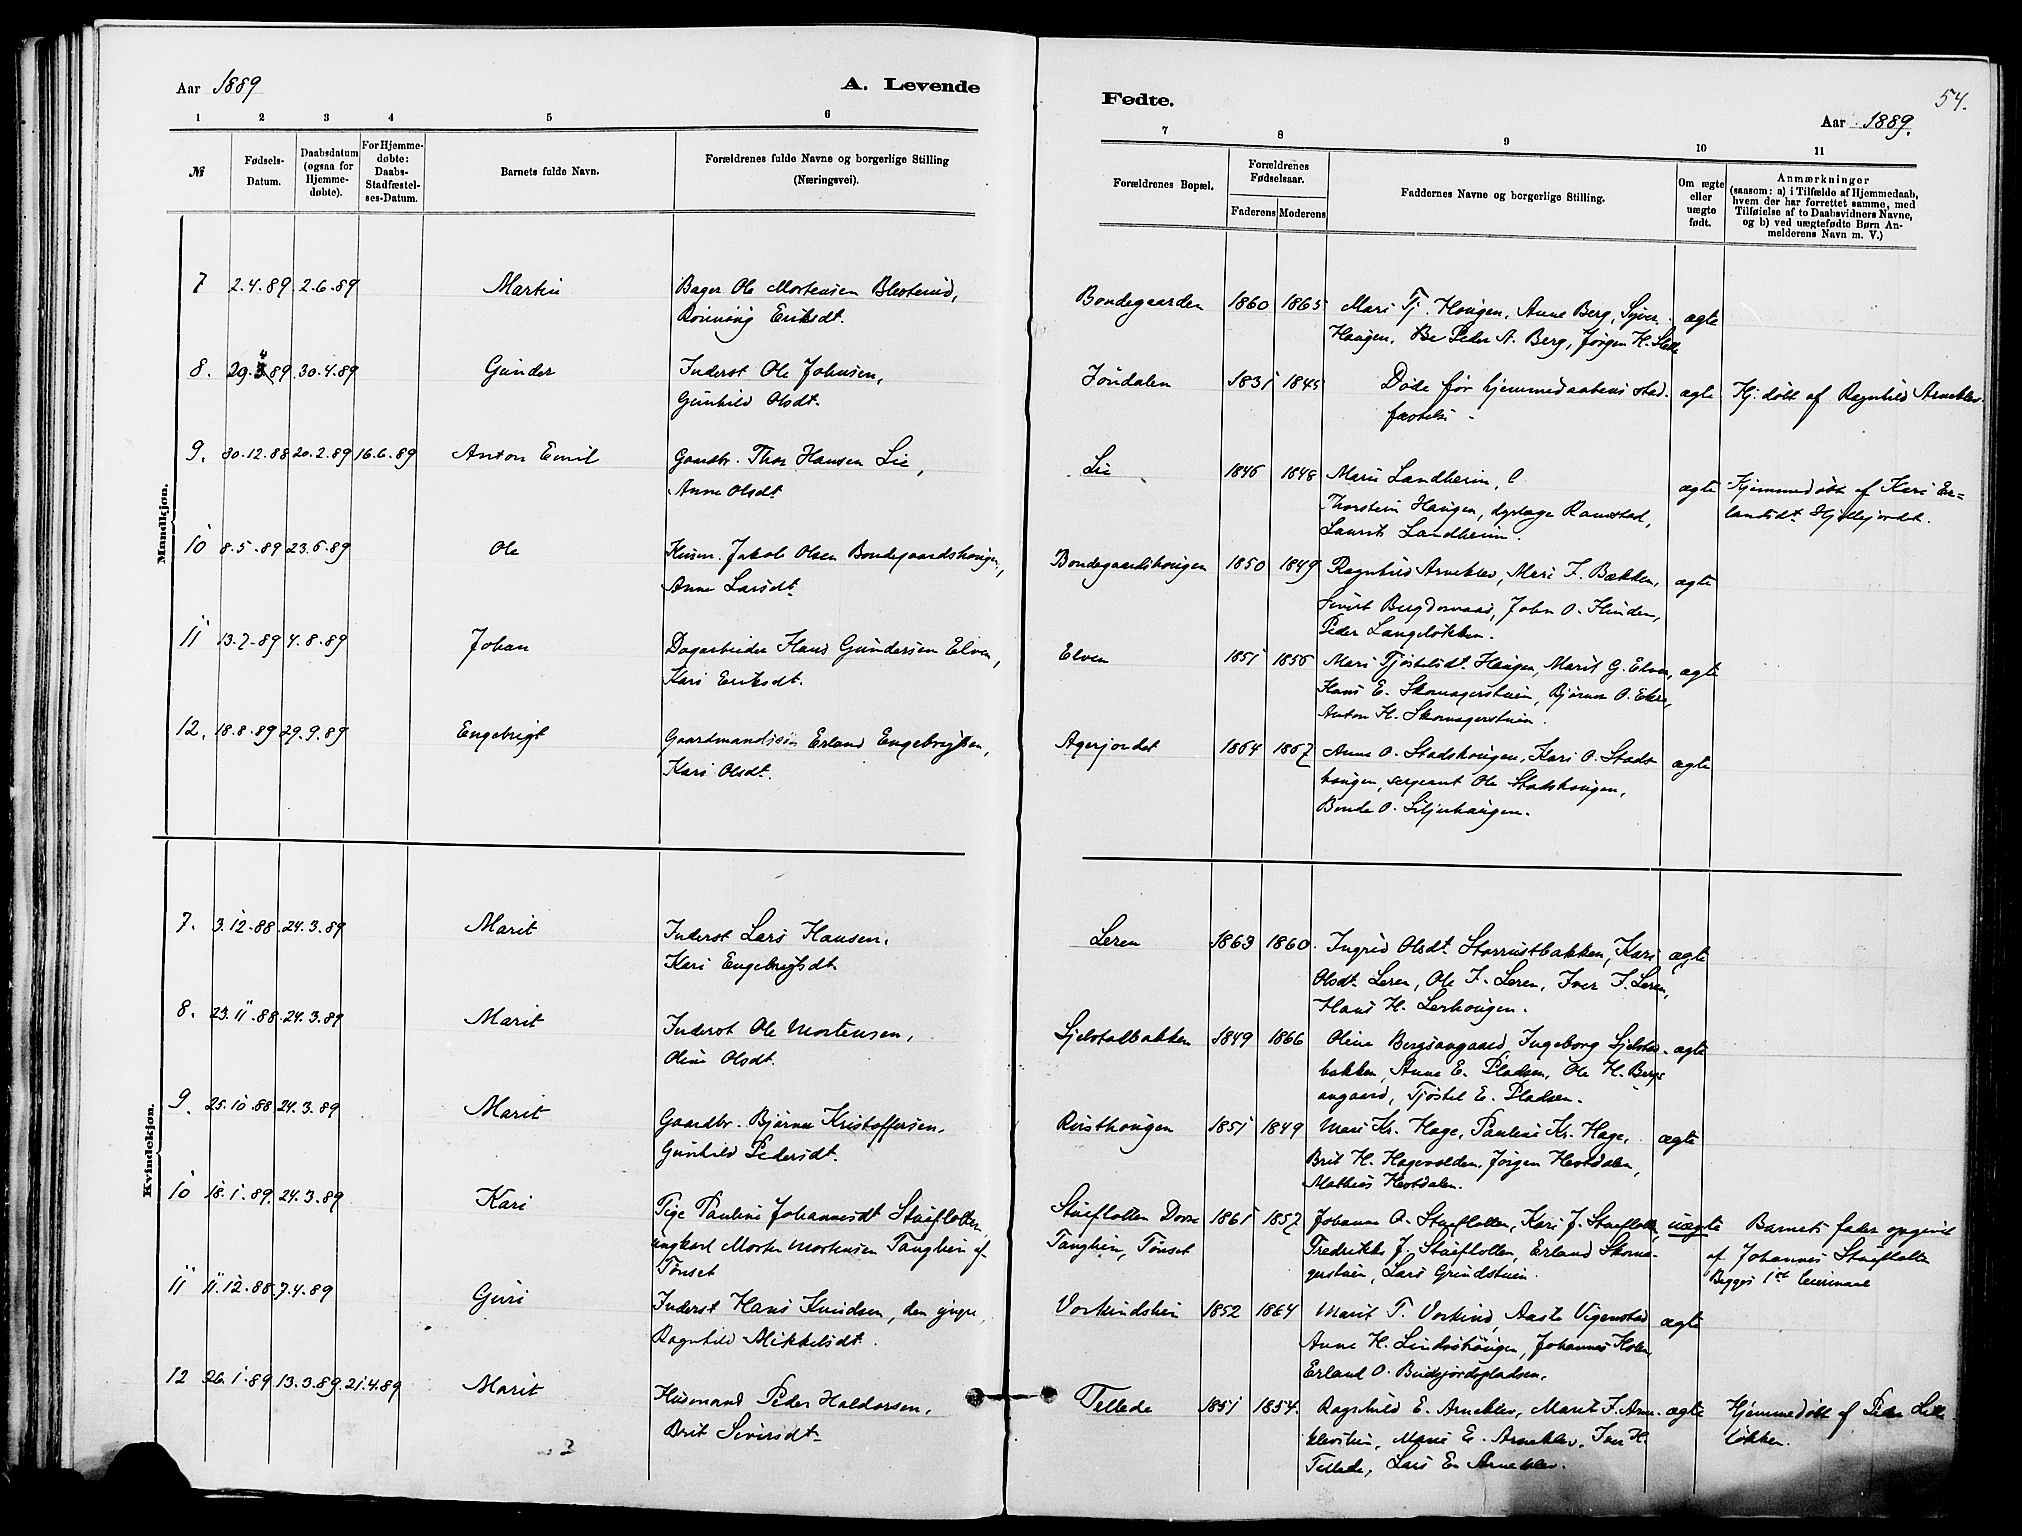 Aar 1889
A. Levende
Fødte.
54.
Aar 1889.
1 2 3 4 5 6 7 8 9 10 11
№
Fødsels-
Datum.
Daabsdatum
(ogsaa for
Hjemme-
døbte).
For Hjemme-
døbte:
Daabs-
Stadfæstel-
ses-Datum.
Barnets fulde Navn.
Forældrenes fulde Navne og borgerlige Stilling
(Næringsvei).
Forældrenes Bopæl.
Forældrenes
Fødselsaar.
Faderens Moderens
Faddernes Navne og borgerlige Stilling.
Om ægte
eller
uægte
født.
Anmærkninger
(saasom: a) i Tilfælde af Hjemmedaab,
hvem der har forrettet samme, med
Tilføielse af to Daabsvidners Navne,
og b) ved uægtefødte Børn An-
melderens Navn m. V.)
Mandkjøn.
7 2.4.89 2.6.89 Martin Bager Ole Mortensen
Rønnaug Eriksdt.
Bondegaarden 1860 1865 Mari Tj. Haugen, Anne Berg, Syver ægte
Haugen, Peder A. Berg, Jørgen H.
8. 29. 89 30.4.89 Gunder Inderst Ole Johnsen,
Gunhild Olsdt.
Jøndalen 1831 1845 Døde før hjemmedaabens stad- ægte Hj. døbt af Ragnhild Arneklev
fæstelse
9. 30.12.88 20.2.89 16.6.89 Anton Emil Gaardbr. Thor Hansen Lie,
Anne Olsdt
Lie 1846 1848 Mari Landheim, ægte Hjemmedøbt af Kari Er-
Thorstein Haugen, dyrlæge Ramstad, landsdt. Hjellejordet.
Laurits Landheim.
10 8.5.89 23.6.89 Ole Husm. Jakob Olsen Bondegaardshougen,
Anne Larsdt.
Bondegaardshougen 1850 1849 Ragnhild Arneklev, Mari J. Bækken, ægte
Sivert John O.
Peder Langeløkken.
11 13.7.89 4.8.89 Johan Dagarbeider Hans Gundersen Elven,
Kari Eriksdt.
Elven 1851 1856 Mari Tjøstelsdt. Haugen, Marit G. Elven, ægte
Hans E. Skomagerstuen, Bjørner O. Ekre,
Anton H. Skomagerstuen.
12. 18.8.89 29.9.89 Engebrigt Gaardmandssøn Erland Engebrigtsen,
Kari Olsdt.
Agerjordet 1864 1867 Anne O. Stadshougen, Kari O. Stads- ægte
hougen, sergeant Ole Stadshougen,
Bonde O. Liljehaugen.
Kvindekjøn.
7. 3.12.88 24.3.89 Marit Inderst Lars Hansen,
Kari Engebrigtsdt.
Leren 1863 1860 Ingrid Olsdt. Storrustbakken, Kari ægte
Olsdt. Leren, Ole I. Leren, Iver I. Leren,
Hans H. Lerhougen.
8. 23.11.88 24.3.89 Marit Inderst Ole Mortensen,
Oline Olsdt.
Sjelstalbakken 1849 1866 Oline Bergsangaard, Ingeborg Sjelstad- ægte
bakken, Anne E. Pladsen, Ole H. Bergs-
angaard, Tjøstel E. Pladsen.
9. 25.10.88 24.3.89 Marit Gaardbr. Bjørner Kristoffersen,
Gunhild Pedersdt.
Rusthougen 1851 1849 Mari Kr. Hage, Pauline Kr. Hage, ægte
Brit H. Hagevolden, Jørgen Hestdalen,
Mathias Hestdalen.
10 18.1.89 24.3.89 Kari Pige Pauline Johannesdt Stueflotten,
ungkarl Morten Mortensen Tanghein af
Tønset
Stueflotten Dovre 1861 1857 Johanne O. Stueflotten, Kari J. Stueflotten, uægte Barnets fader opgivet
Tanghein, Tønset Fredrikke J. Stueflotten, Erland Skoma- af Johannes Stueflotten
gerstuen, Lars Grindstuen. Begges 1ste leiermaal
11 11.12.88 7.4.89 Guri Inderst Hans Knudsen, den yngre,
Ragnhild Mikkelsdt.
Vorkindshein 1852 1864 Marit T. Vorkind, Aaste Vigenstad ægte
Anne H. Lindsøhaugen, Johannes Holen,
Erland O. Budsjordspladsen.
12 26.1.89 13.3.89 21.4.89 Marit Husmand Peder Haldorsen,
Brit Siversdt.
Tellede 1851 1854. Ragnhild E. Arneklev, Marit J. Arne- ægte Hjemmedøbt af Peder Lille-
klevshein, Marie E. Arneklev, Iver H. løkken.
Tellede, Lars E. Arneklev.